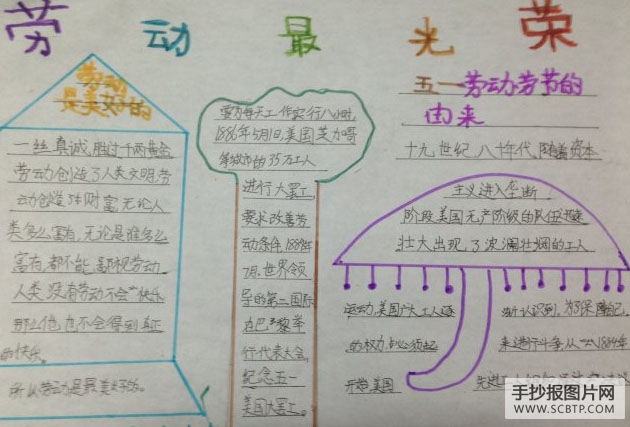 劳动最光荣
劳动
是美好的
一丝真诚,胜过千两黄金
劳动创造了人类文明,劳
动创造了财富,无论人
类多么富有,无论是谁多么
富有,都不能忽视劳动
人类没有劳动不会快乐
那么他也不会得到真正
的快乐。
所以劳动是最美好的。
劳动每天工作实行八小时,
1886年5月1日,美国芝加哥
等城市的35万工人
进行大罢工,
要求改善劳
动条件,1889年
7月,世界领
导的第二国际
在巴黎举
行代表大会,
纪念五一
美国大罢工。
五一劳动劳节的
由来
十九世纪八十年代,随着资本
主义进入垄断
阶段,美国无产阶级的队伍迅速
壮大,出现了波澜壮阔的工人
运动,美国广大工人逐 渐认识到,为了保障自己
的权力,必须起 来进行斗争,从1884年
开始,美国 先进
手抄报图片网
WWW.SCBTP.COM